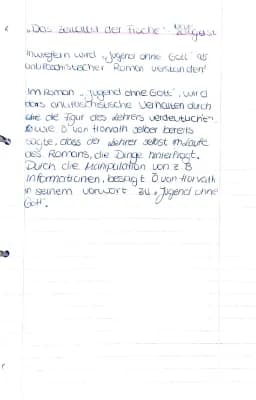 „Das Zeitalter der Fische"
Inwiefern wird „Jugend ohne Gott" als
antifaschistischer Roman verstanden?
Im Roman „Jugend ohne Gott", wird
das antifaschistische Verhalten durch
die Figur des Lehrers verdeutlicht.
Sowie Ö von Horvath selber bereits
sagte, dass der Lehrer selbst im Laufe
des Romans, die Dinge hinterfragt.
Durch die Manipulation von z B
Informationen, besagt Ö von Horvath
in seinem Vorwort zu „Jugend ohne
Gott".